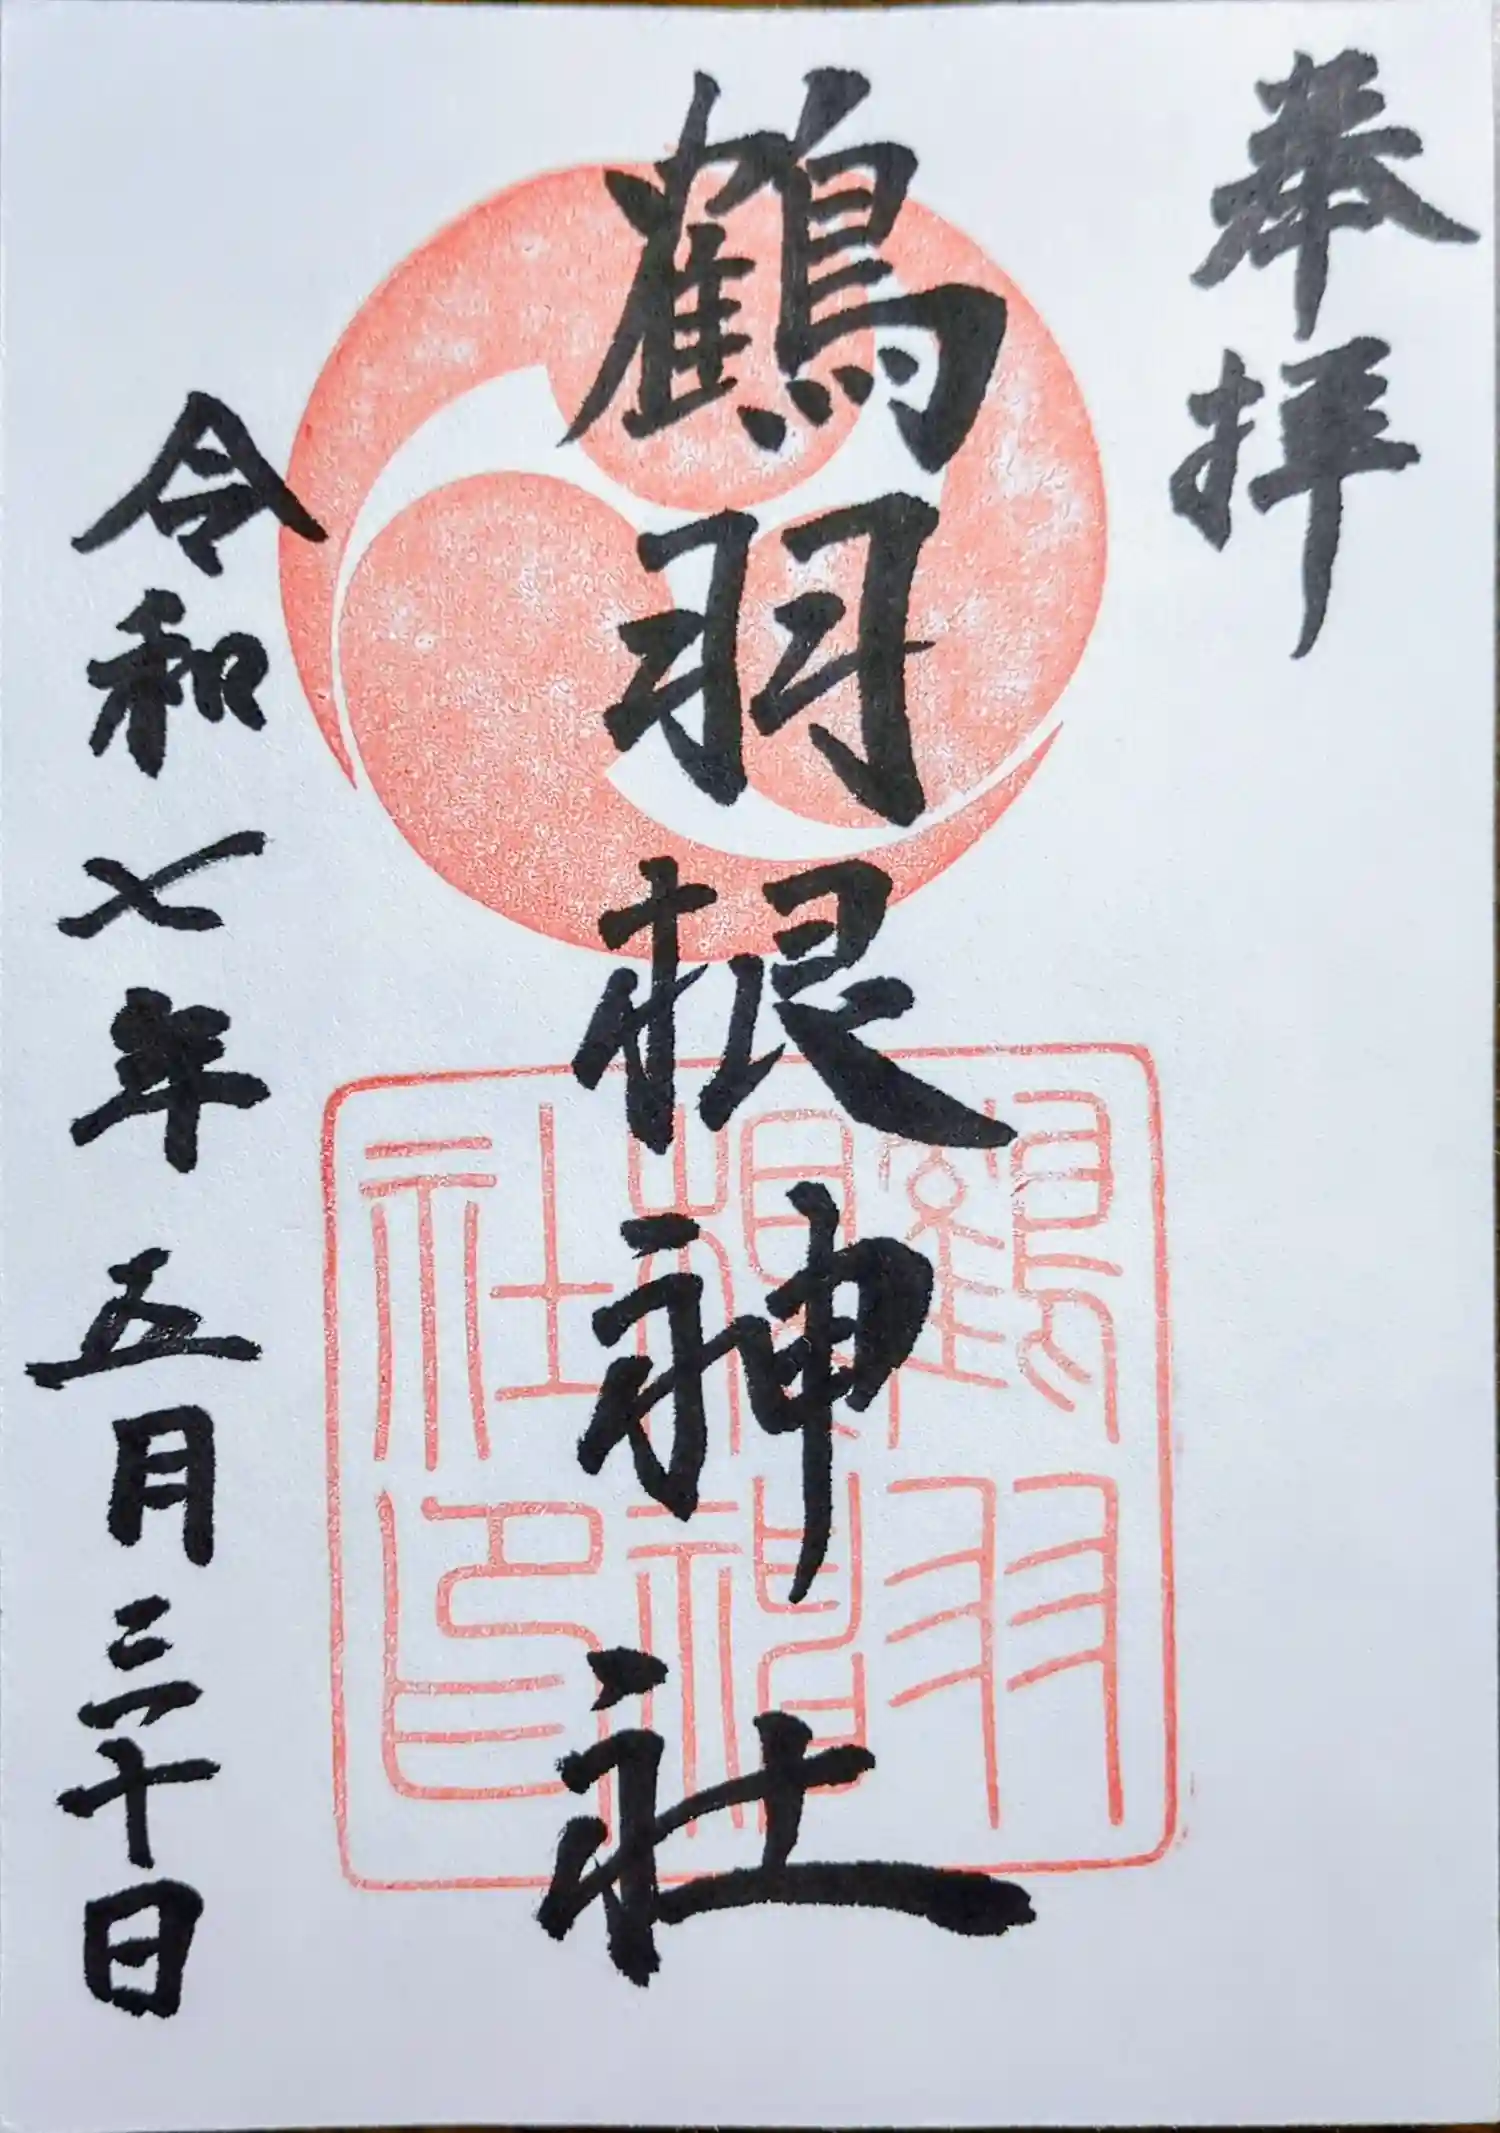 奉拝
鶴羽根神社
令和七年五月三十日
鶴羽
根神
社印